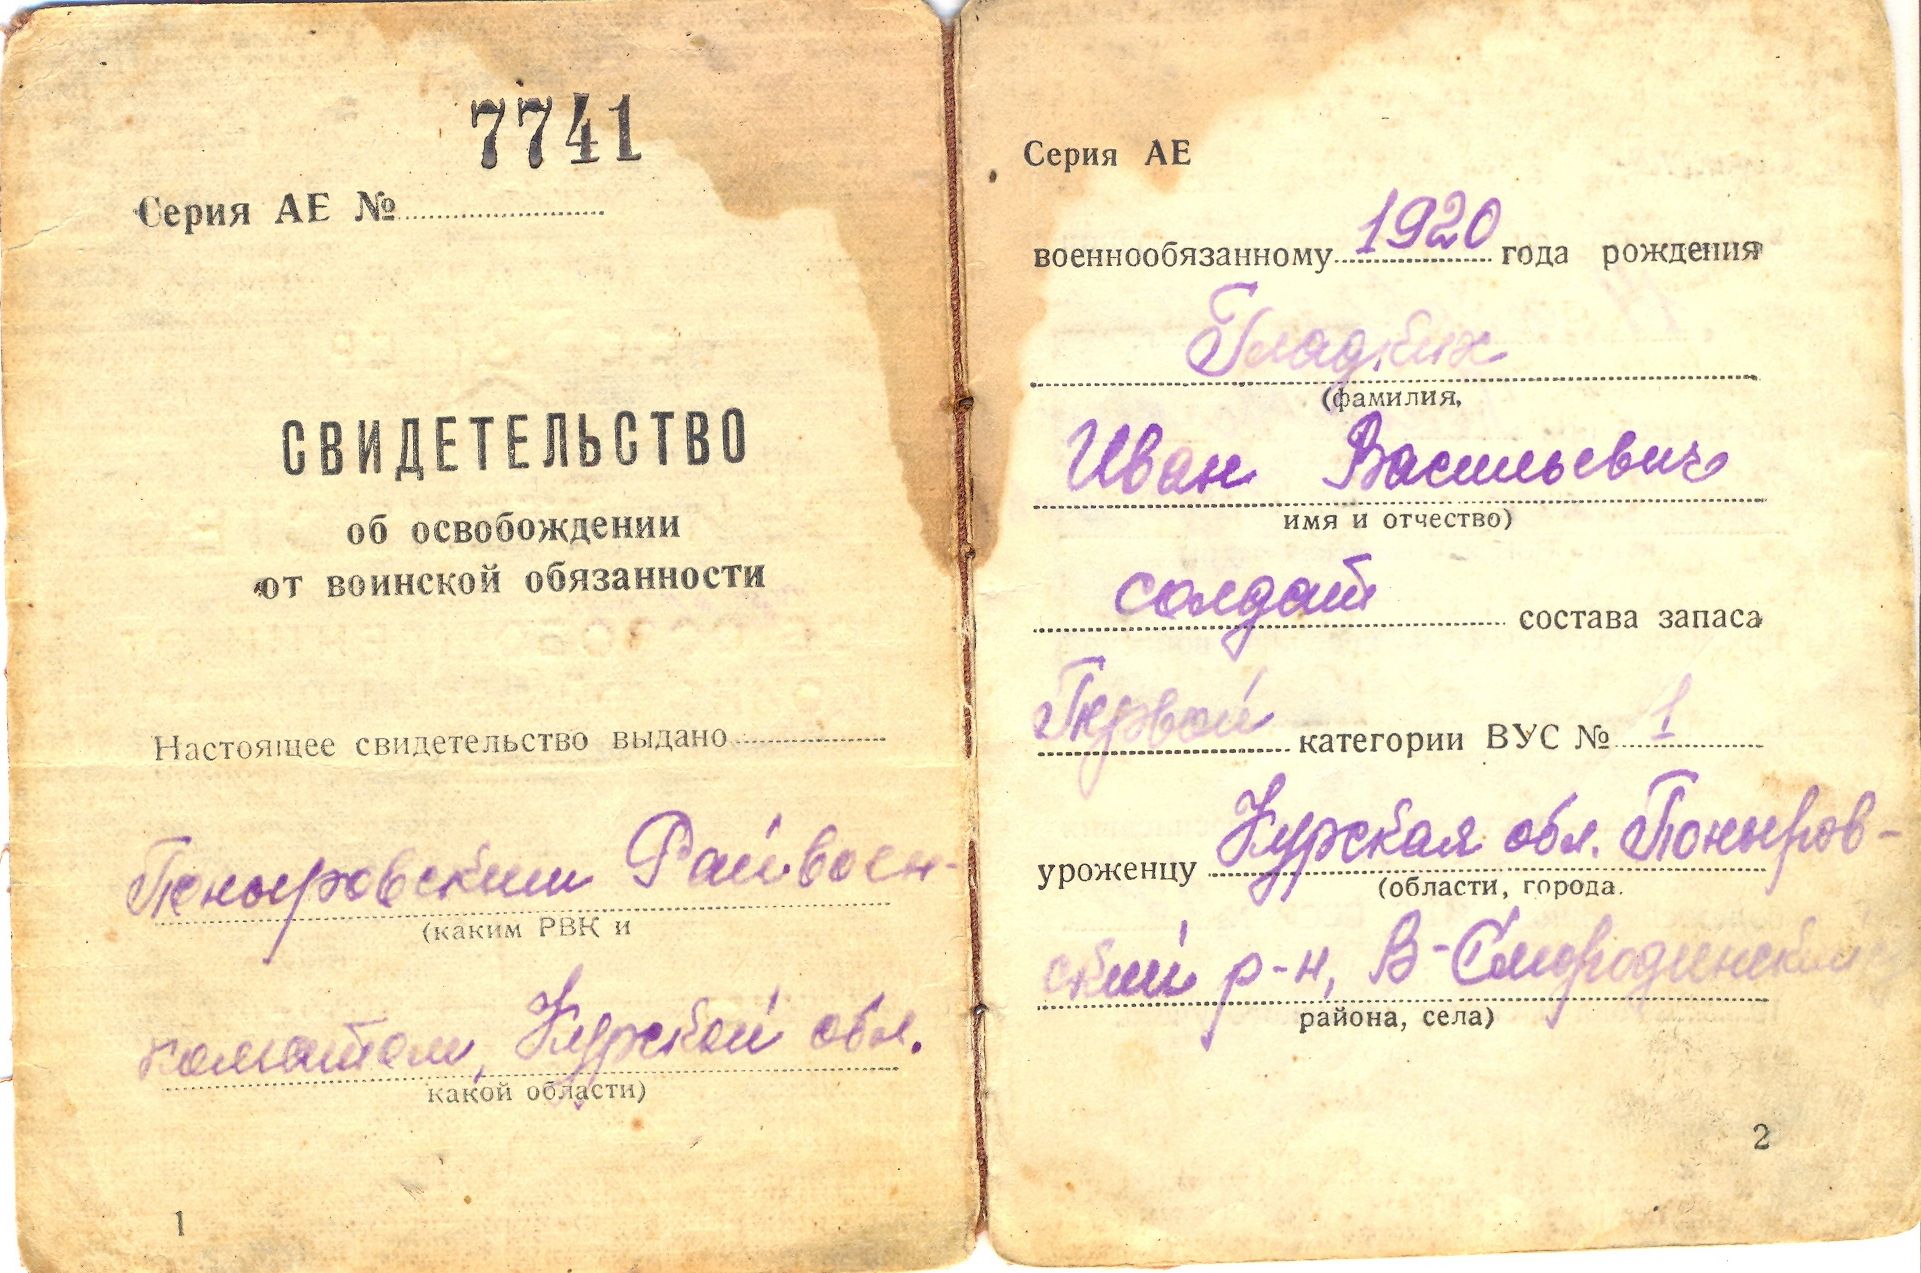 7741
Серия АЕ №
СВИДЕТЕЛЬСТВО
об освобождении
от воинской обязанности
Настоящее свидетельство выдано
Поныровским Райвоен-
(каким РВК и
коматом, Курской обл.
какой области)
1
Серия АЕ
военнообязанному 1920 года рождения
Гладких
(фамилия,
Иван Васильевич
имя и отчество)
солдат состава запаса
Первой категории ВУС № 1
уроженцу Курская обл. Поныров-
(области, города.
ский р-н, В-Смородинский
района, села)
2